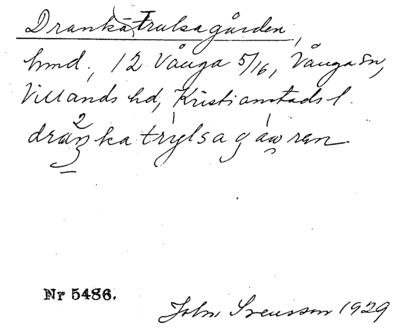 Drankatrulsagården,
hmd., 12 Vånga 5/16, Vånga sn,
Villands hd, Kristianstads l.
drankatrylsagáwren
Nr 5486.
John Svensson 1929